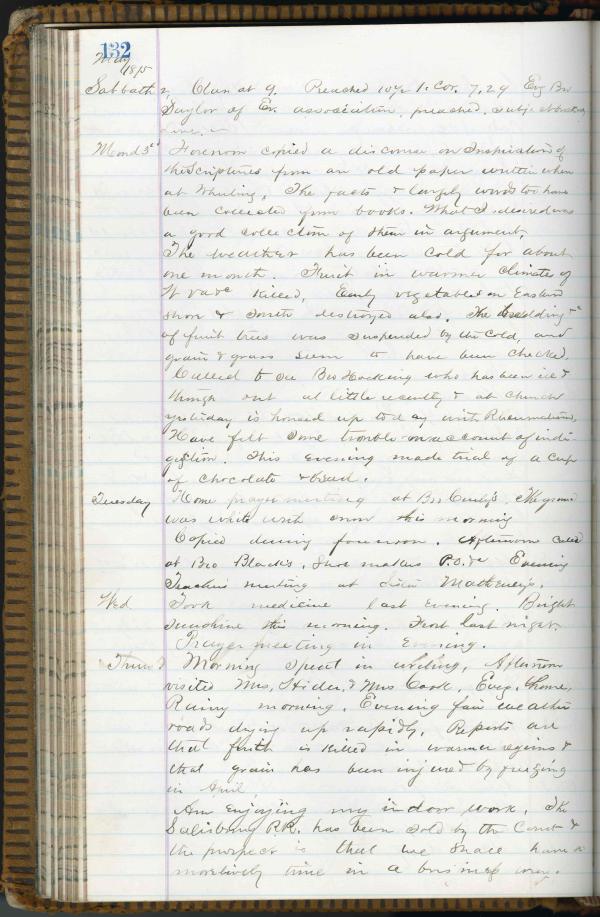 132
May 1875
Sabbath 2, Class at 9. Preached 10½ 1. Cor. 7.29 Eve Bro
Taylor of Ev. association, preached. subject
Mond 3rd Forenoon copied a discourse on Inspiration of
the Scriptures from an old paper written when
at Wheeling, The facts & largely words too have
been collected from books. What I desired was
a good collection of them in argument.
The weather has been cold for about
one month. Fruit in warmer climates of
W Va &c killed, Early vegetables on Eastern
shore & South destroyed also. The budding &c
of fruit trees was suspended by the cold, and
grain & grass seem to have been checked.
Called to see Bro Hocking who has been ill &
though out at little recently & at church
yesterday is housed up today with Rheumatism,
Have felt some trouble on account of indi-
gestion. This evening made trial of a cup
of chocolate & bread.
Tuesday Home prayermeeting at Bro The ground
was white with snow this morning
Copied during forenoon. Afternoon called
at Bro Black's, Shoe makers P.O. &c Evening
Teachers meeting at Matthews.
Wed Took medicine last Evening. Bright
sunshine this morning. Frost last night.
Prayer meeting in Evening.
Thurs Morning spent in writing, Afternoon
visited Mrs, & Mrs Cook, Eveg. home,
Rainy morning. Evening fair weather
roads drying up rapidly, Reports are
that fruit is killed in warmer regions &
that grain has been injured by freezing
in April.
Am Enjoying my indoor work. The
Salisbury RR. has been sold by the Court &
the prospect is that we shall have a
more lively time in a business way.